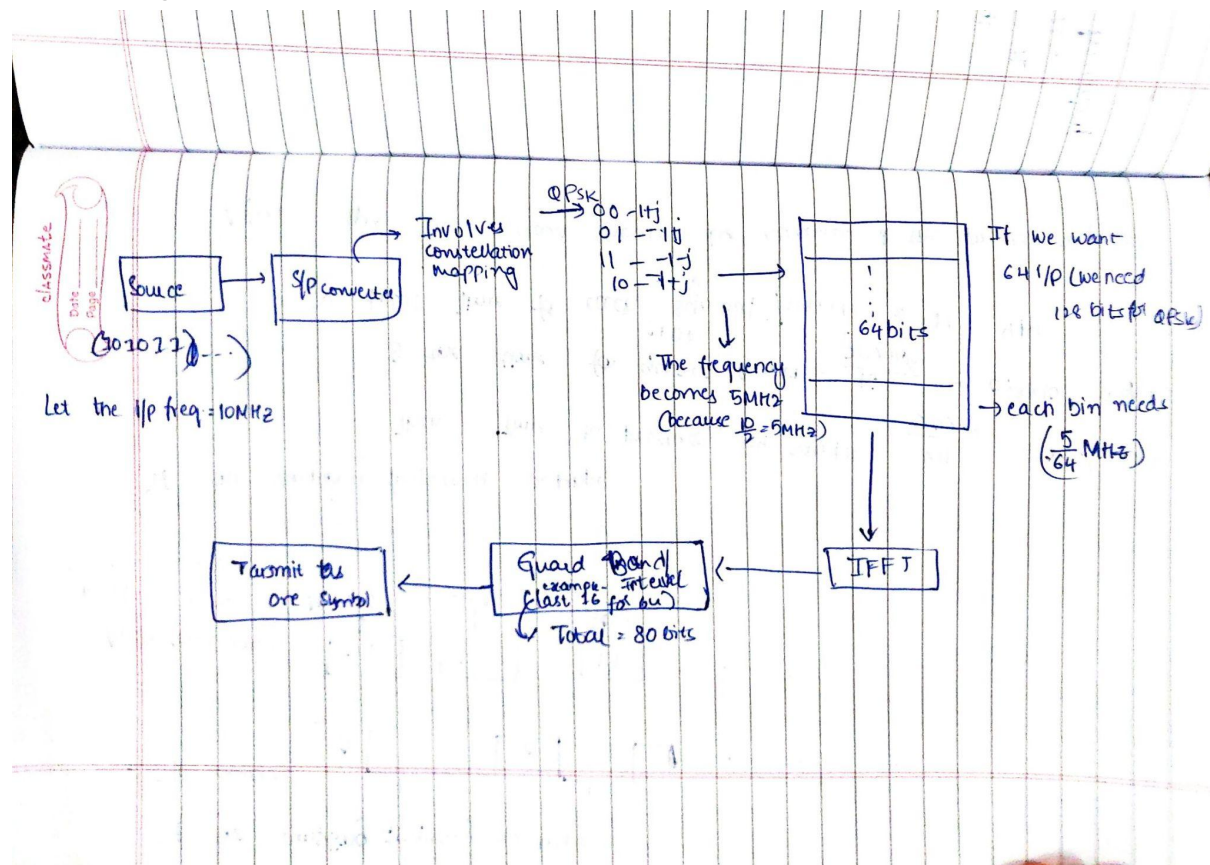 classmate
Date
Page
Source
(101011)....)
Let the i/p freq = 10MHz
S/P converter
Involves
constellation
mapping
QPSK
00 - 1+j
01 - -1+j
11 - -1-j
10 - -1+j
The frequency
becomes 5MHz
(because 10/2 = 5MHz)
64 bits
If we want
64 i/p (we need
128 bits for QPSK)
→ each bin needs
(5/64 MHz)
IFFT
Guard Band/
Interval
example-
(last 16 for 64)
Total = 80 bits
Transmit as
one symbol